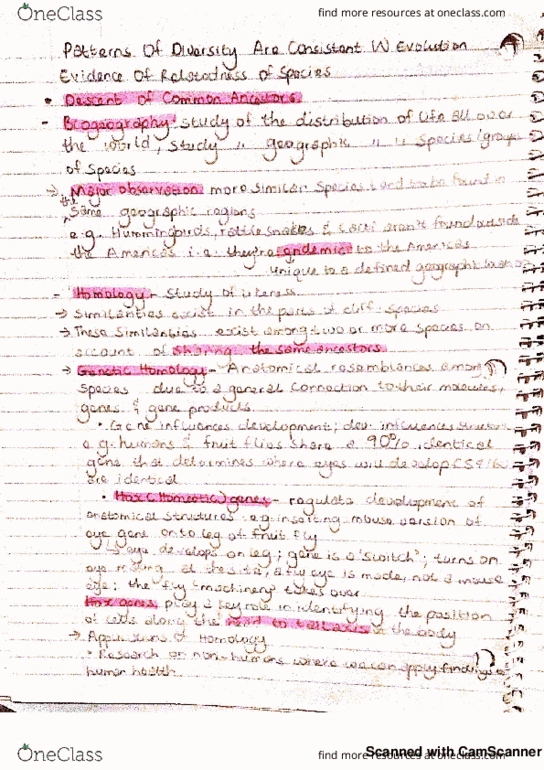 OneClass
find more resources at oneclass.com
Patterns Of Diversity Are Consistent W Evolution
Evidence Of Relatedness of Species
• Descent of Common Ancestors
- Biogeography: study of the distribution of life all over
the world, study " geographic " " species/groups
of species
→ Major observation: more similar species tend to be found in
the same geographic regions
e.g. Hummingbirds, rattle snakes & cacti aren't found outside
the Americas i.e. they're endemic to the Americas
unique to a defined geographic
- Homology - study of likeness
→ Similarities exist in the parts of diff. species
→ These similarities exist among two or more species on
account of sharing the same ancestors
→ Genetic Homology - Anatomical resemblances among
species due to a general connection to their molecules,
genes & gene products
• Gene influences development; dev. influences
e.g. humans & fruit flies share a 90% identical
gene that determines where eyes will develop
are identical
• Hox (Homeotic) genes - regulate development of
anatomical structures e.g. inserting mouse version of
eye gene onto leg of fruit fly
→ eye develops on leg; gene is a "switch"; turns on
eye making at the site, a fly eye is made, not a mouse
eye; the fly "machinery" takes over
Hox genes play a key role in identifying the position
of cells along the head to tail axis in the body
→ Applications of Homology
• Research on non-humans where we can apply findings to
human health
OneClass
find more resources at oneclass.com
Scanned with CamScanner